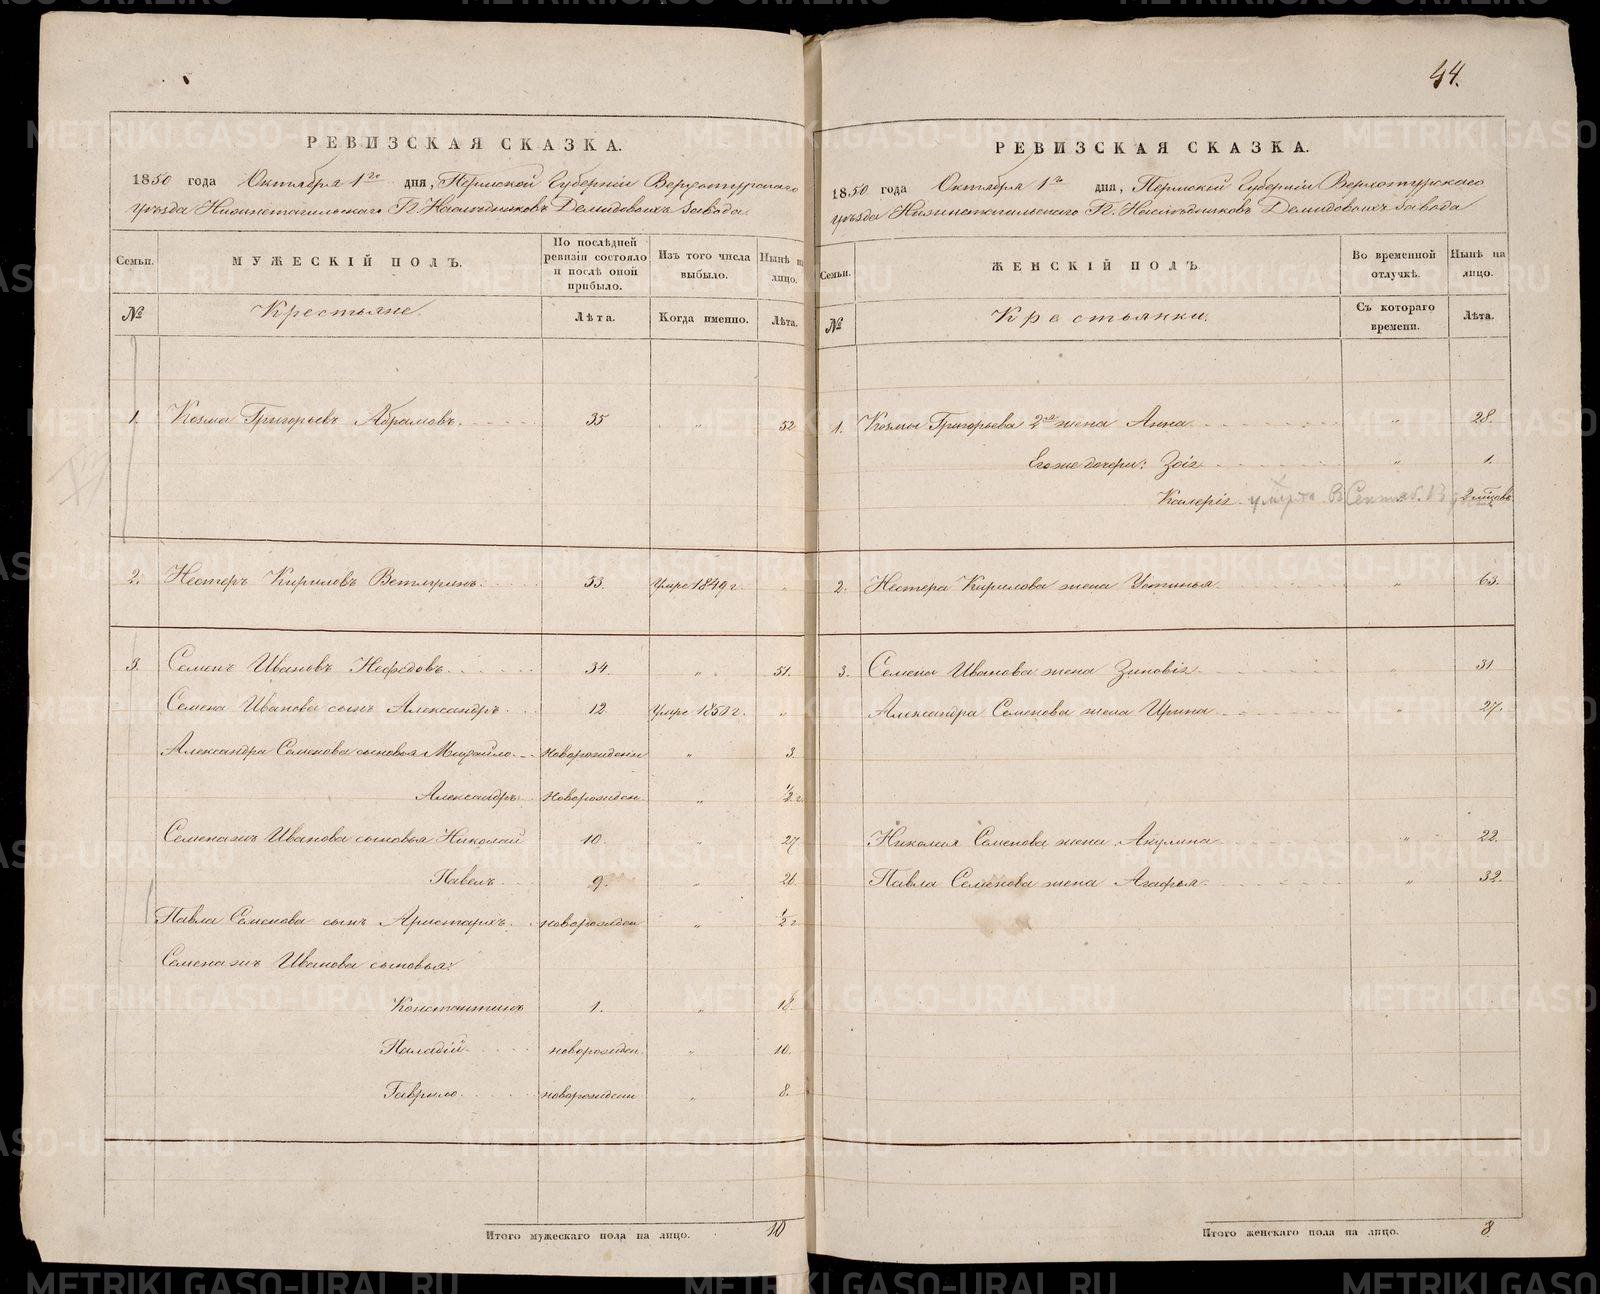 44.
РЕВИЗСКАЯ СКАЗКА.
1850 года Октября 1го дня, Пермской Губерніи Верхотурскаго
уѣзда Нижнетагильскаго Г. Наслѣдниковъ Демидовыхъ Завода.
Семьи.
МУЖЕСКІЙ ПОЛЪ.
По послѣдней ревизіи состояло и послѣ оной прибыло.
Изъ того числа выбыло.
Нынѣ на лицо.
№
Крестьяне.
Лѣта.
Когда именно.
Лѣта.
1. Козма Григорьевъ Абрамовъ. 35 " 52
2. Нестеръ Кириловъ Ветлугинъ. 53. Умре 1849 г.
3. Семенъ Ивановъ Нефедовъ. 34. " 51.
Семена Иванова сынъ Александръ. 12 Умре 1850 г. "
Александра Семенова сыновья Михайло. Новорожденны " 3.
Александръ. Новорожден. " 1/2 г
Семена жъ Иванова сыновья Николай 10. " 27
Павелъ. 9. " 26
Павла Семенова сынъ Аристархъ. новорожден " 1/2 г
Семена жъ Иванова сыновья:
Константинъ 1. " 18.
Паладій. новорожден. " 10.
Гаврило. новорожден " 8.
Итого мужескаго пола на лицо. 10
РЕВИЗСКАЯ СКАЗКА.
1850 года Октября 1го дня, Пермской Губерніи Верхотурскаго
уѣзда Нижнетагильскаго Г. Наслѣдниковъ Демидовыхъ Завода
Семьи.
ЖЕНСКІЙ ПОЛЪ.
Во временной отлучкѣ.
Нынѣ на лицо.
№
Крестьянки.
Съ котораго времени.
Лѣта.
1. Козмы Григорьева 2я жена Анна " 28.
Его же дочери: Зоя " 1.
Калерія умерла В Сентяб. 2 мѣсцовъ
2. Нестера Кирилова жена Устинья " 63.
3. Семена Иванова жена Зиновія " 31
Александра Семенова жена Ирина " 27.
Николая Семенова жена Акулина " 22.
Павла Семенова жена Агафья. " 32.
Итого женскаго пола на лицо. 8
METRIKI.GASO-URAL.RU